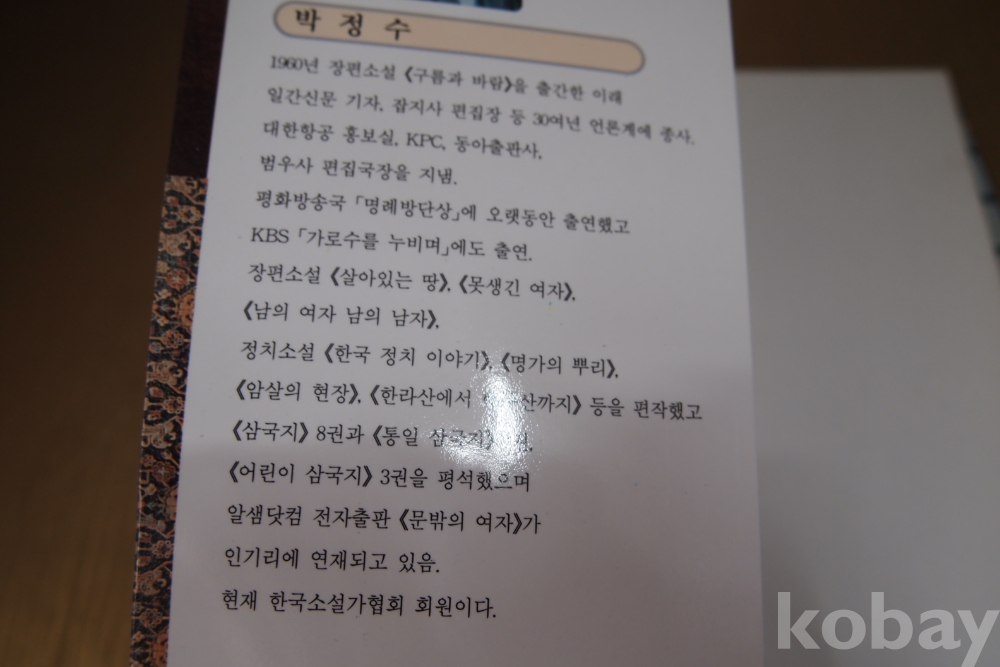 박 정 수
1960년 장편소설 《구름과 바람》을 출간한 이래
일간신문 기자, 잡지사 편집장 등 30여년 언론계에 종사.
대한항공 홍보실, KPC, 동아출판사,
범우사 편집국장을 지냄.
평화방송국 「명례방단상」에 오랫동안 출연했고
KBS 「가로수를 누비며」에도 출연.
장편소설 《살아있는 땅》, 《못생긴 여자》,
《남의 여자 남의 남자》,
정치소설 《한국 정치 이야기》, 《명가의 뿌리》,
《암살의 현장》, 《한라산에서 등을 편작했고
《삼국지》 8권과 《통일 삼국지》
《어린이 삼국지》 3권을 평석했으며
알샘닷컴 전자출판 《문밖의 여자》가
인기리에 연재되고 있음.
현재 한국소설가협회 회원이다.
kobay